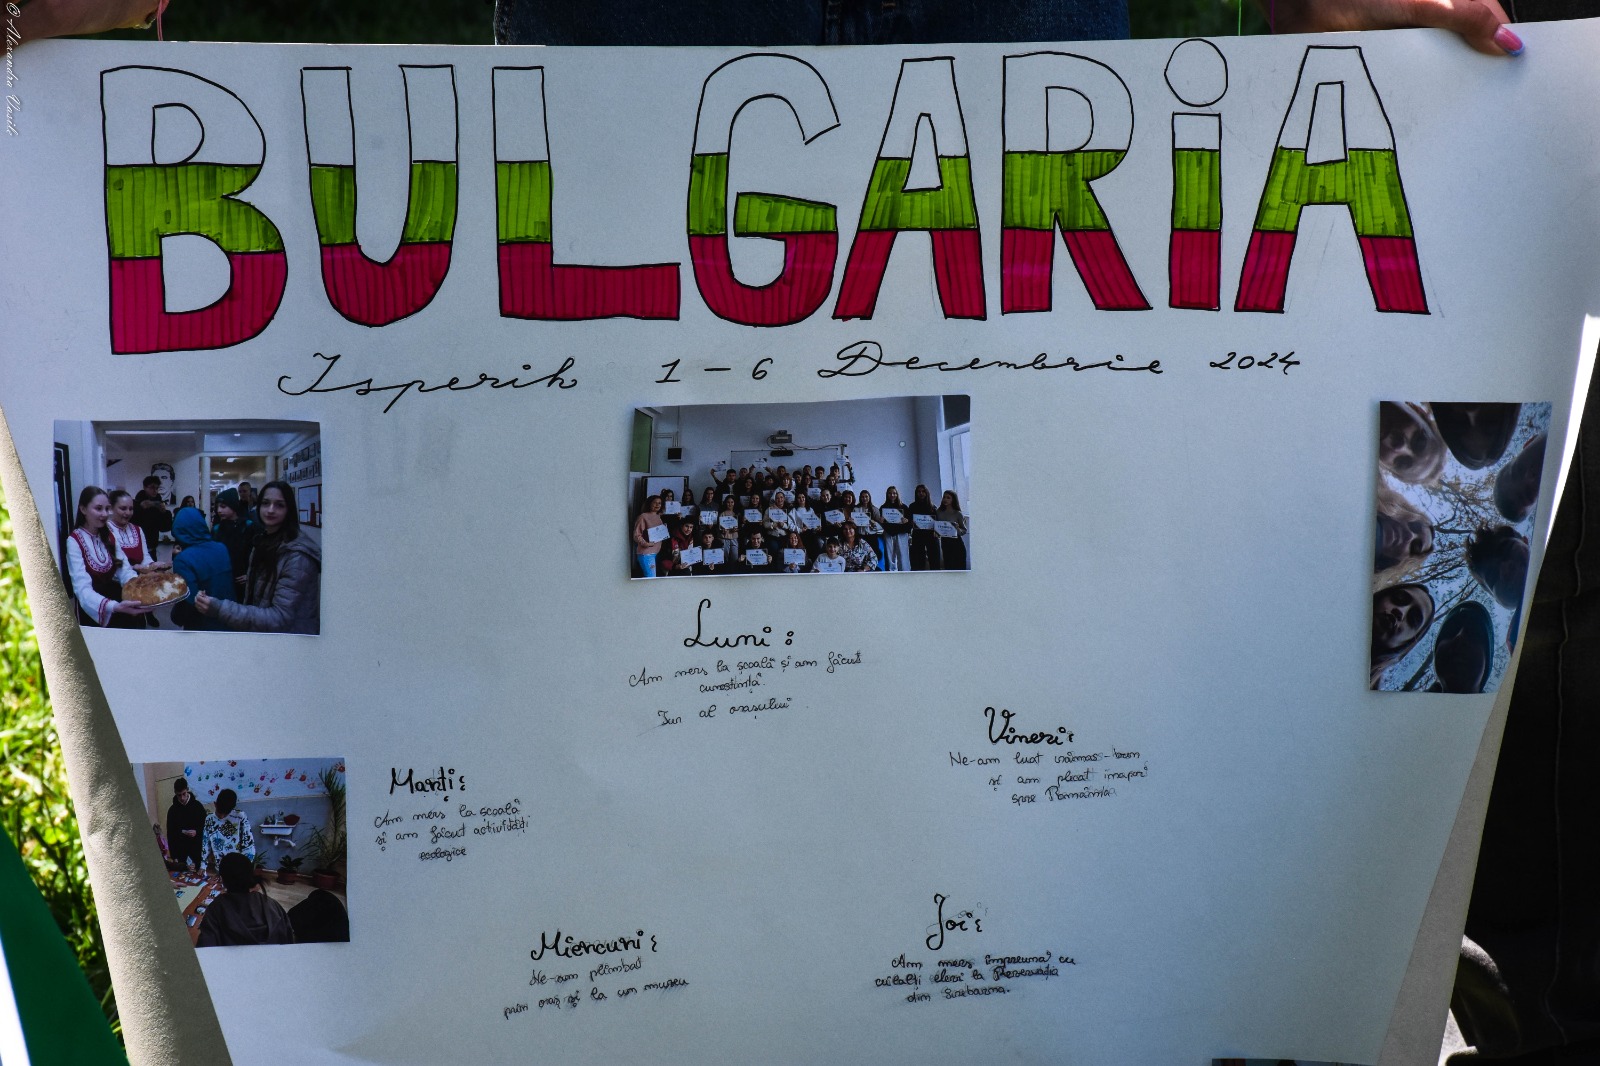 © Alexandra Vasile
BULGARiA
Isperih 1 - 6 Decembrie 2024
Luni:
Am mers la școală și am făcut
cunoștință.
Tur al orașului
Vineri:
Ne-am luat rămas-bun
și am plecat înapoi
spre România
Marți:
Am mers la școală
și am făcut activități
ecologice
Miercuri:
Ne-am plimbat
prin oraș și la un muzeu
Joi:
Am mers împreună cu
ceilalți elevi la Rezervația
din Srebarna.